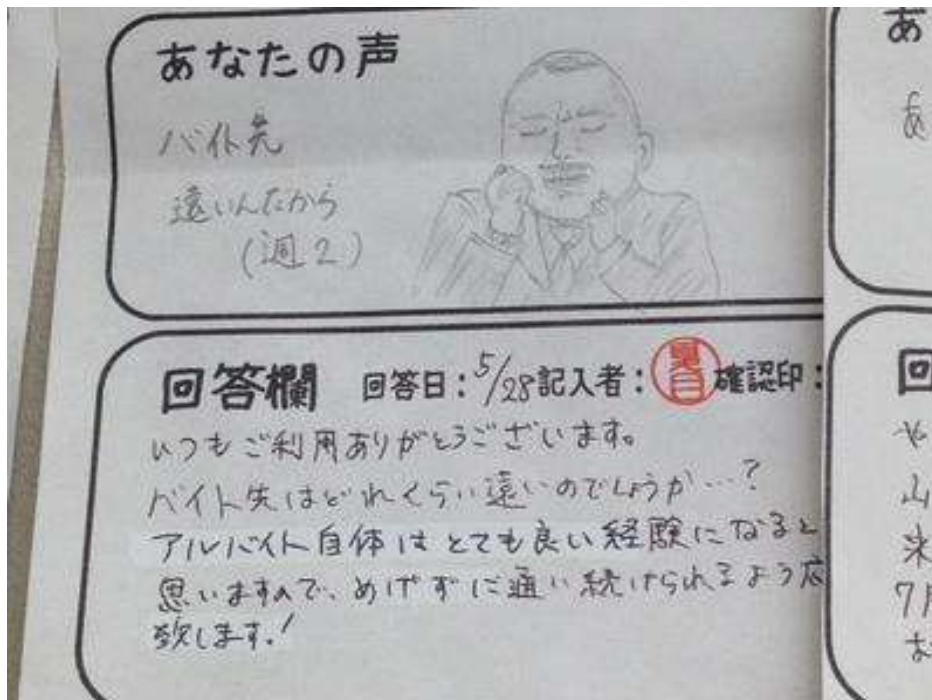 あなたの声
バイト先
遠いんだから
(週2)
回答欄 回答日: 5/28 記入者: 確認印:
いつもご利用ありがとうございます。
バイト先はどれくらい遠いのでしょうか…?
アルバイト自体はとても良い経験になると
思いますので、めげずに通い続けられるよう応
致します!
あ
あ
回
や
山
米
7月
お